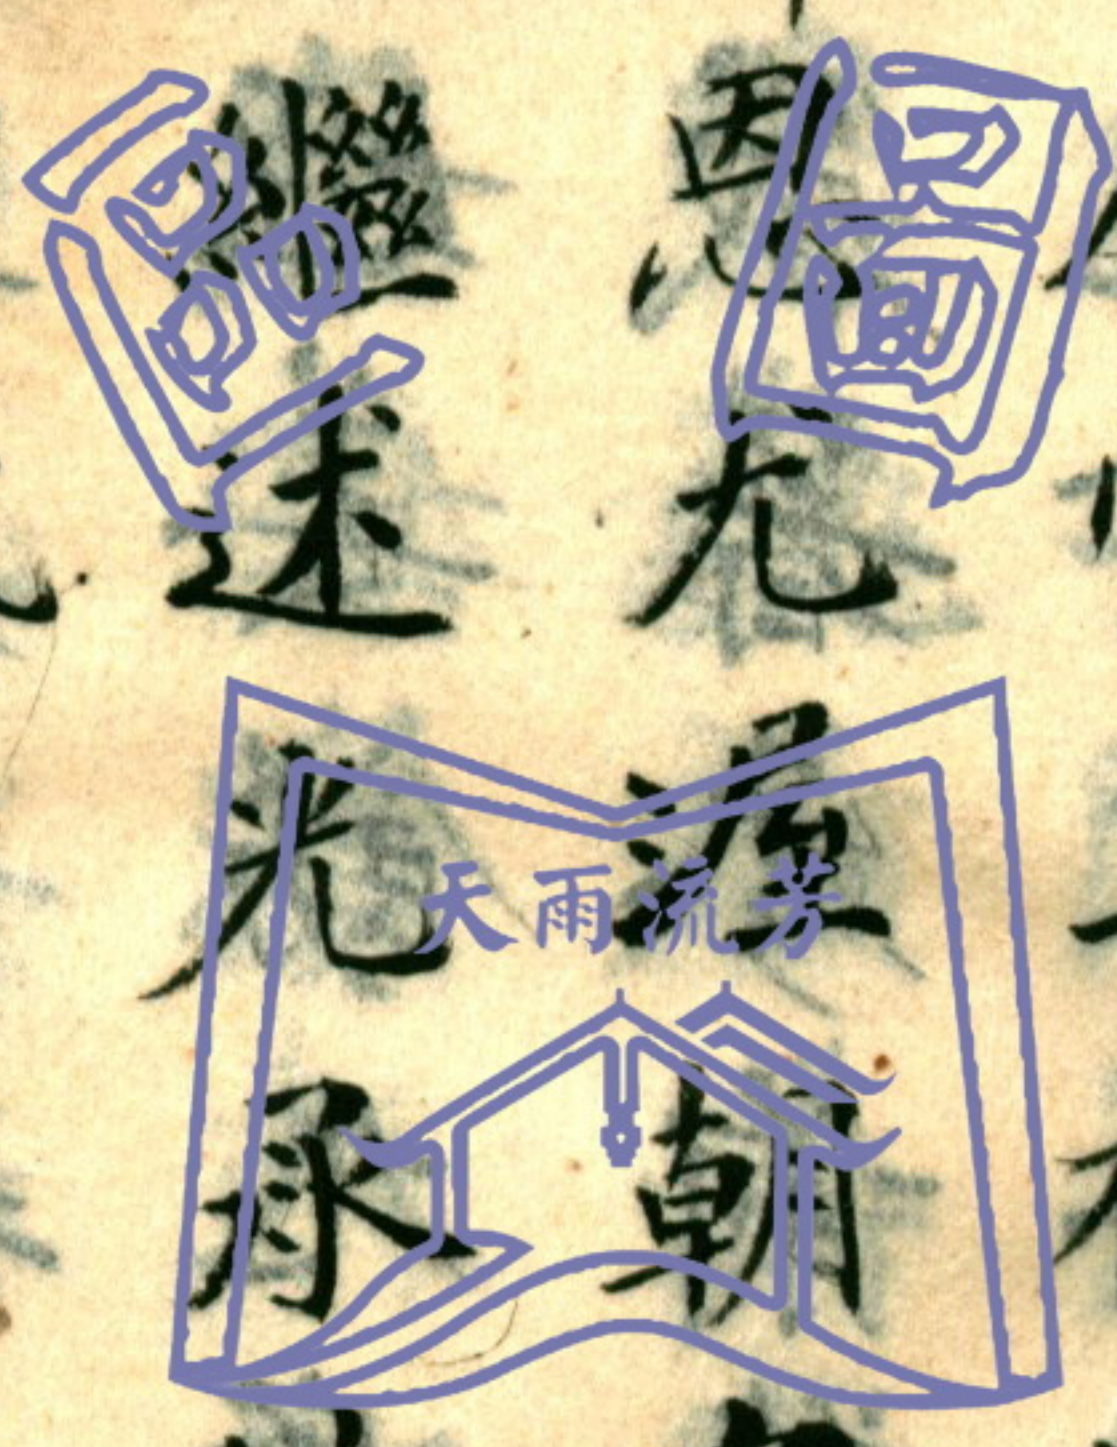 恩尤渥朝
繼述光承
區圖
天雨流芳